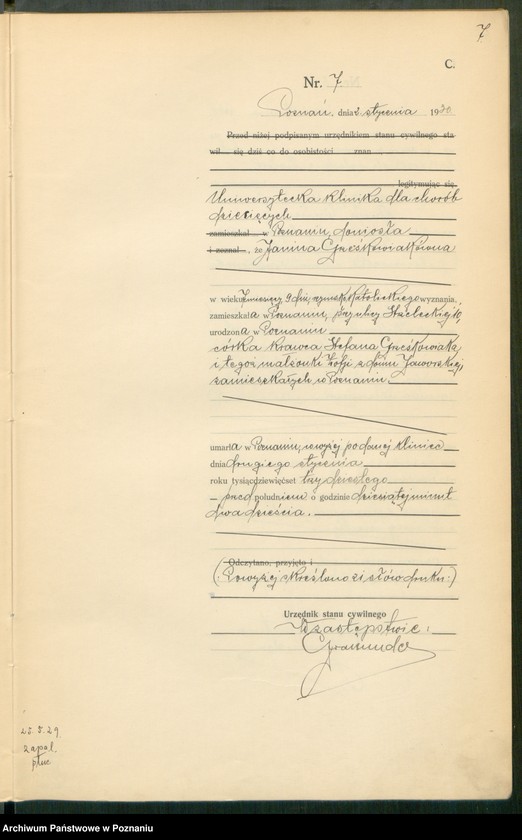 7
C.
Nr. 7
Poznań, dnia 3 stycznia 1930
Przed niżej podpisanym urzędnikiem stanu cywilnego sta-
wił się dziś co do osobistości znan
legitymując się
Uniwersytecka klinika dla chorób
dziecięcych
zamieszkał w Poznaniu, doniosła
i zeznał, że Janina Grześkowiakówna
w wieku 7 miesięcy 9 dni, rzymskokatolickiego wyznania,
zamieszkała w Poznaniu, przy ulicy Strzeleckiej 10,
urodzona w Poznaniu
córka krawca Stefana Grześkowiaka
i tegoż małżonki Zofji z domu Jaworskiej,
zamieszkałych w Poznaniu
umarła w Poznaniu, w wyżej podanej klinice
dnia drugiego stycznia
roku tysiącdziewięćset trzydziestego
przed południem o godzinie dziesiątej minut
dwadzieścia.
Odczytano, przyjęto i
(: Powyżej skreślono 21 słów druku :)
Urzędnik stanu cywilnego
W zastępstwie:
25.5.29
zapal.
płuc
Archiwum Państwowe w Poznaniu